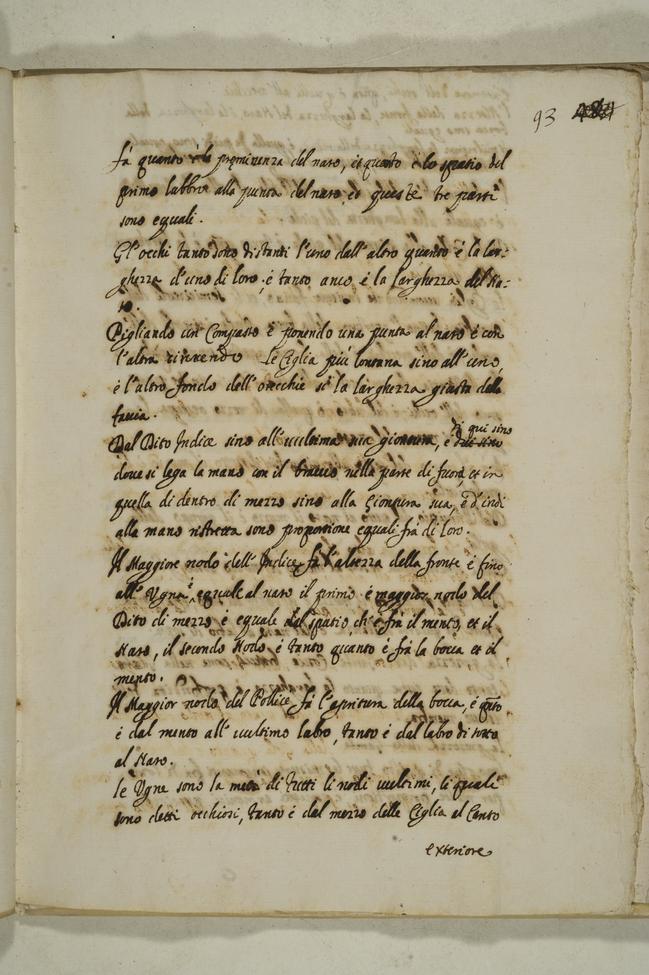 93
fà quanto è la prominenza del naso, et quanto è lo spatio del
primo labbro alla punta del naso, et queste tre parti
sono equali.
Gl'occhi tanto sono distanti l'uno dall'altro quanto è la lar:
ghezza d'uno di loro, è tanto anco è la larghezza del Na:
so.
Pigliando un Compasso è ponendo una punta al naso è con
l'altra le Ciglia più lontana sino all'uno,
è l'altro fondo dell'orecchie si la larghezza giusta della
faccia.
Dal Dito Indice sino all'ultima sua giontura, è
di qui sino
dove si lega la mano con il braccio nella parte di fuora, et in
quella di dentro di mezzo sino alla Giontura sua, è d'indi
alla mano ristretta sono proportione equali frà di loro.
Il Maggiore nodo dell'Indice fà l'altezza della fronte è fino
all'Ugna è equale al naso il primo è maggior nodo del
Dito di mezzo è equale dal spatio, ch'è frà il mento, et il
Naso, il secondo Nodo è tanto quanto è frà la bocca et il
mento.
Il Maggior nodo del Pollice fà l'apritura della bocca, è qto
è dal mento all'ultimo labro, tanto è dal labro di sotto
al Naso.
le Ugne sono la metà di tutti li nodi ultimi, li quali
sono detti occhiori, tanto è dal mezzo delle Ciglia al Canto
exteriore